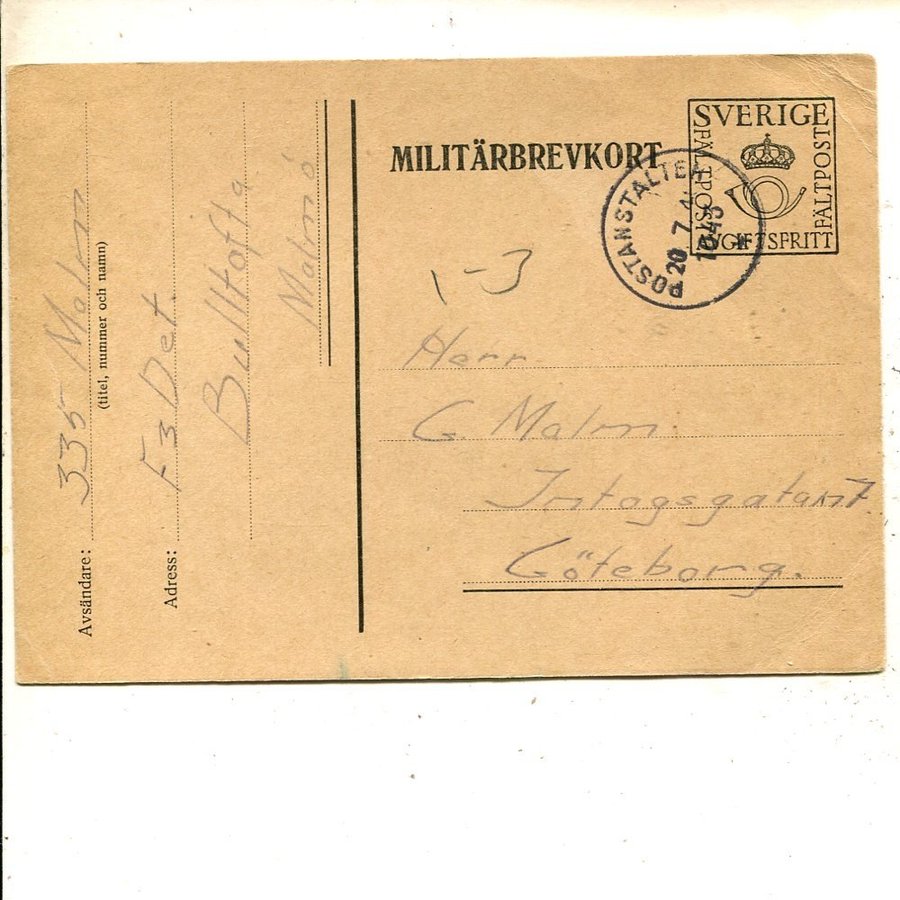 MILITÄRBREVKORT
SVERIGE
FÄLTPOST
FÄLTPOST
AVGIFTSFRITT
POSTANSTALTEN
20 7
1943
1-3
Herr
G. Malm.
Intagsgatan 7
Göteborg.
Avsändare: 335 Malm
(titel, nummer och namn)
Adress: F3 Det.
Bulltofta
Malmö